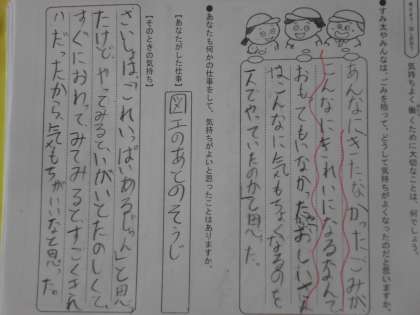 気持ちよく働くために大切なことは、何でしょう。
●すみ太やみんなは、ごみを拾って、どうして気持ちがよくなったのだと思いますか。
あんなにきたなかったごみが
こんなにきれいになるなんて
おもてもいなかった。おじいさん
はこんなに気もちよくなるのを
一人でやっていたのかと思った。
●あなたも何かの仕事をして、気持ちがよいと思ったことはありますか。
【あなたがした仕事】
図工のあとのそうじ
【そのときの気持ち】
さいしょは、「これいっぱいあるじゃん」と思
たけど、やってみるといがいとたのしくて、
すぐにおわって、みてみるとすごくきれ
いだったから、気もちがいいなと思った。